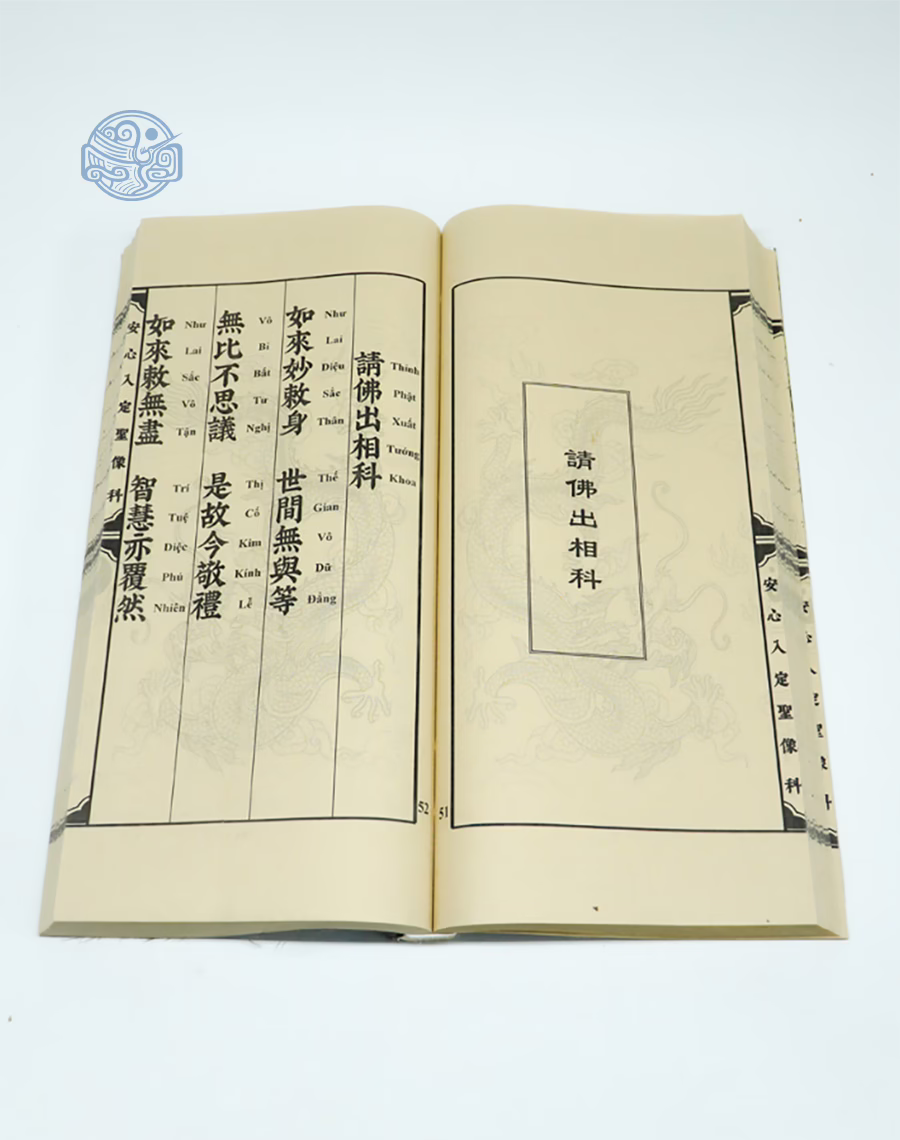 請佛出相科
安心入定聖像科
51
請佛出相科
Thỉnh Phật Xuất Tướng Khoa
如來妙敕身 世間無與等
Như Lai Diệu Sắc Thân Thế Gian Vô Dữ Đẳng
無比不思議 是故今敬禮
Vô Bỉ Bất Tư Nghị Thị Cố Kim Kính Lễ
如來敕無盡 智慧亦覆然
Như Lai Sắc Vô Tận Trí Tuệ Diệc Phú Nhiên
安心入定聖像科
52